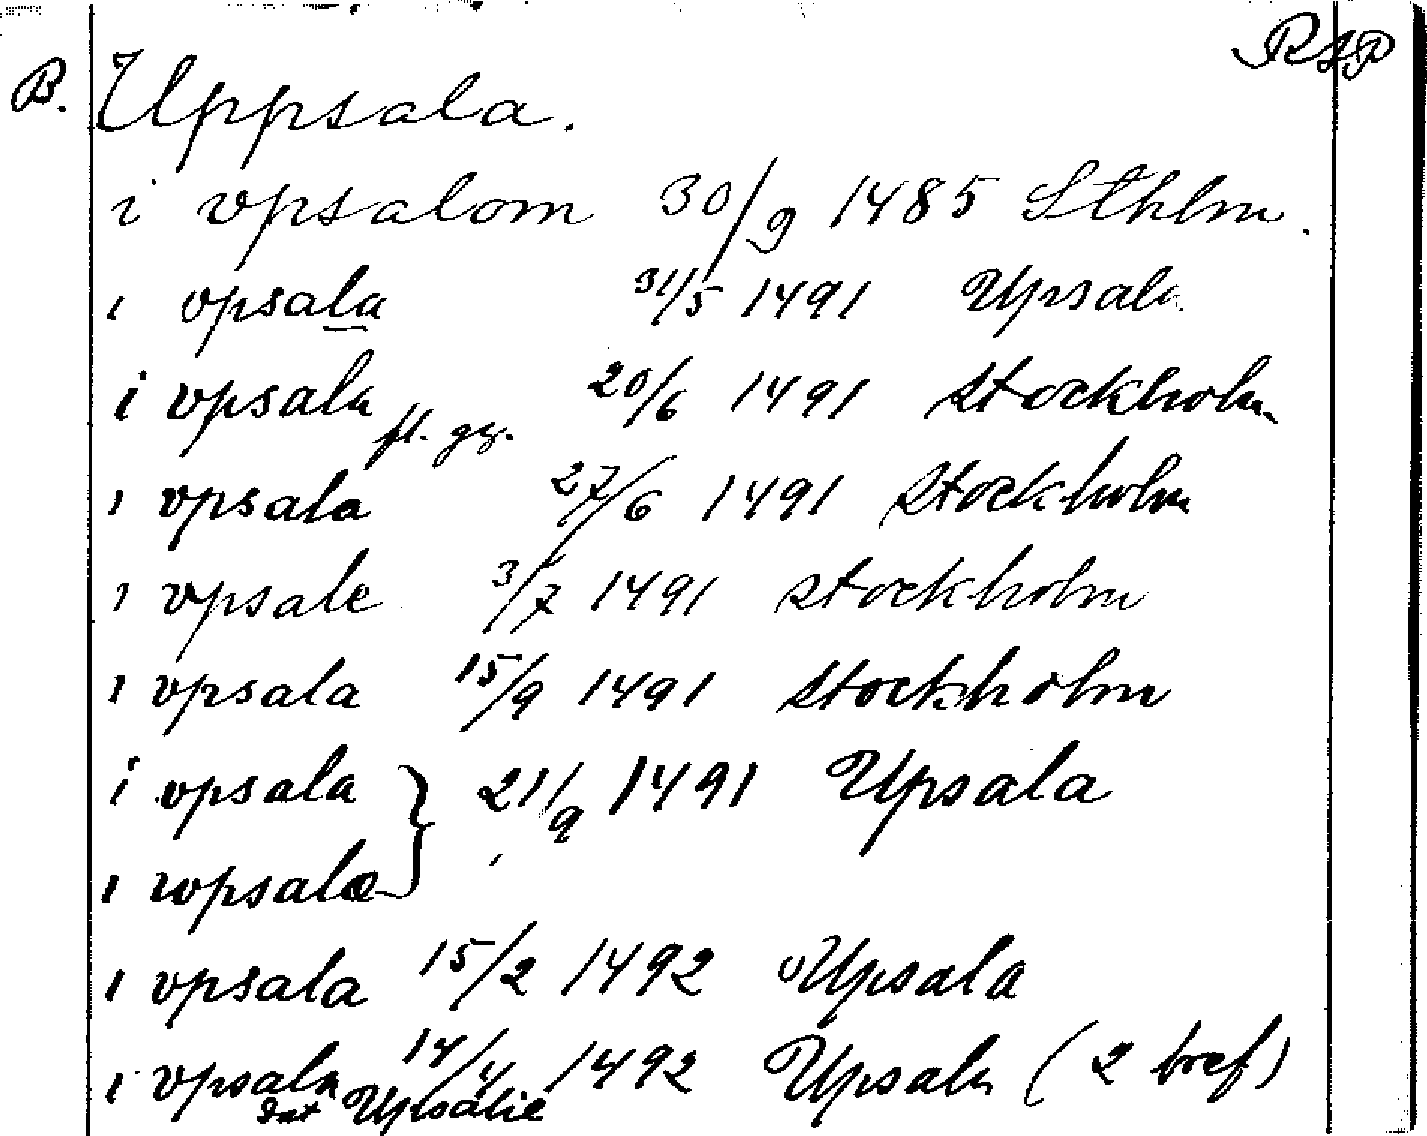 B. Uppsala. RSP
i vpsalom 30/9 1485 Sthlm.
i vpsala 31/5 1491 Upsala
i vpsala fl. gg. 20/6 1491 Stockholm
i vpsala 27/6 1491 Stockholm
i vpsale 3/7 1491 Stockholm
i vpsala 15/9 1491 Stockholm
i vpsala } 21/9 1491 Upsala
i wpsalæ
i vpsala 15/2 1492 Upsala
i vpsala 14/4 1492 Upsala (2 bref)
Dat Upsalie